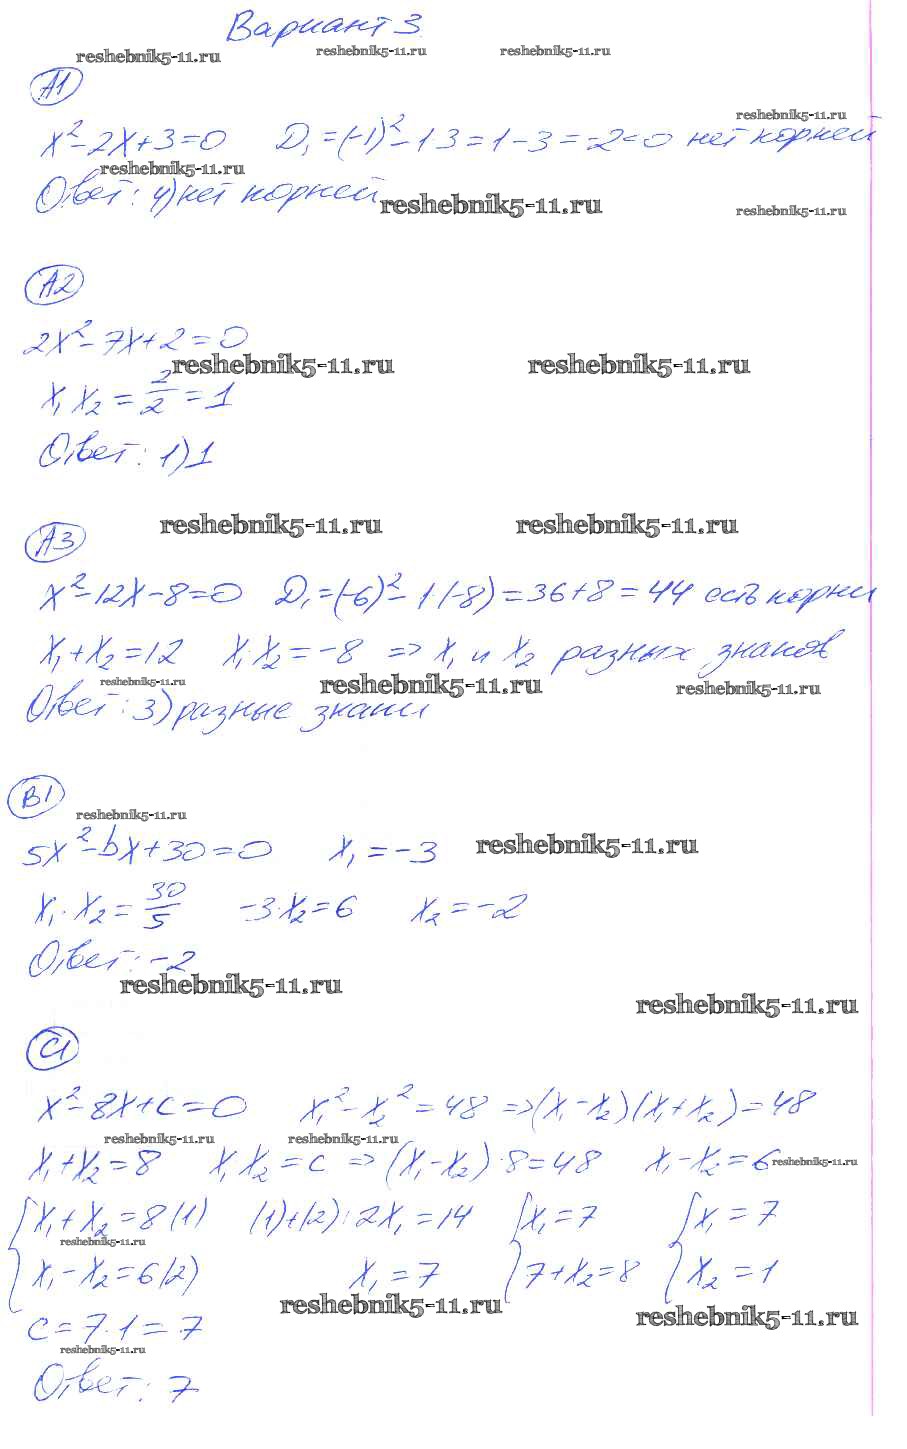 Вариант 3
reshebnik5-11.ru reshebnik5-11.ru reshebnik5-11.ru
А1
reshebnik5-11.ru
x² - 2x + 3 = 0 D₁ = (-1)² - 1·3 = 1 - 3 = -2 < 0 нет корней
reshebnik5-11.ru
Ответ: 4) нет корней
reshebnik5-11.ru reshebnik5-11.ru
А2
2x² - 7x + 2 = 0
reshebnik5-11.ru reshebnik5-11.ru
x₁ x₂ = 2/2 = 1
Ответ: 1) 1
reshebnik5-11.ru reshebnik5-11.ru
А3
x² - 12x - 8 = 0 D₁ = (-6)² - 1·(-8) = 36 + 8 = 44 есть корни
x₁ + x₂ = 12 x₁ x₂ = -8 => x₁ и x₂ разных знаков
reshebnik5-11.ru reshebnik5-11.ru reshebnik5-11.ru
Ответ: 3) разные знаки
В1
reshebnik5-11.ru
5x² - bx + 30 = 0 x₁ = -3 reshebnik5-11.ru
x₁ · x₂ = 30/5 -3·x₂ = 6 x₂ = -2
Ответ: -2
reshebnik5-11.ru reshebnik5-11.ru
С1
x² - 8x + c = 0 x₁² - x₂² = 48 => (x₁ - x₂)(x₁ + x₂) = 48
reshebnik5-11.ru reshebnik5-11.ru
x₁ + x₂ = 8 x₁ x₂ = c => (x₁ - x₂)·8 = 48 x₁ - x₂ = 6 reshebnik5-11.ru
{ x₁ + x₂ = 8 (1) (1)+(2): 2x₁ = 14 { x₁ = 7 { x₁ = 7
reshebnik5-11.ru
x₁ - x₂ = 6 (2) x₁ = 7 7 + x₂ = 8 x₂ = 1
reshebnik5-11.ru reshebnik5-11.ru
c = 7·1 = 7
reshebnik5-11.ru
Ответ: 7